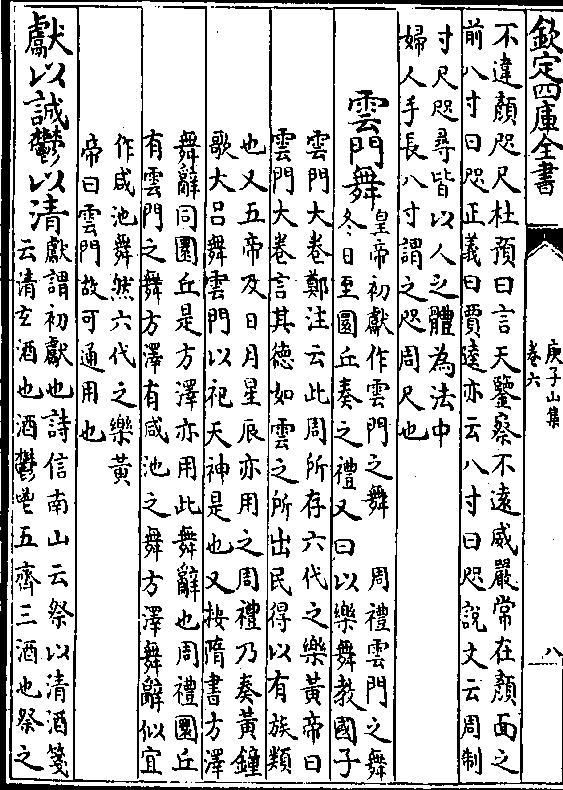 欽定四庫全書
庾子山集
卷六
八
不違顏咫尺杜預曰言天鑒察不逺威嚴常在顏面之
前八寸曰咫正義曰賈逵亦云八寸曰咫說文云周制
寸尺咫尋皆以人之體為法中
婦人手長八寸謂之咫周尺也
雲門舞
皇帝初獻作雲門之舞　周禮雲門之舞
冬日至圜丘奏之禮又曰以樂舞教國子
雲門大卷鄭注云此周所存六代之樂黃帝曰
雲門大卷言其德如雲之所出民得以有族類
也又五帝及日月星辰亦用之周禮乃奏黃鐘
歌大吕舞雲門以祀天神是也又按隋書方澤
舞辭同圜丘是方澤亦用此舞辭也周禮圜丘
有雲門之舞方澤有咸池之舞方澤舞辭似宜
作咸池舞然六代之樂黃
帝曰雲門故可通用也
獻以誠鬱以清
獻謂初獻也詩信南山云祭以清酒箋
云清玄酒也酒鬱鬯五齊三酒也祭之